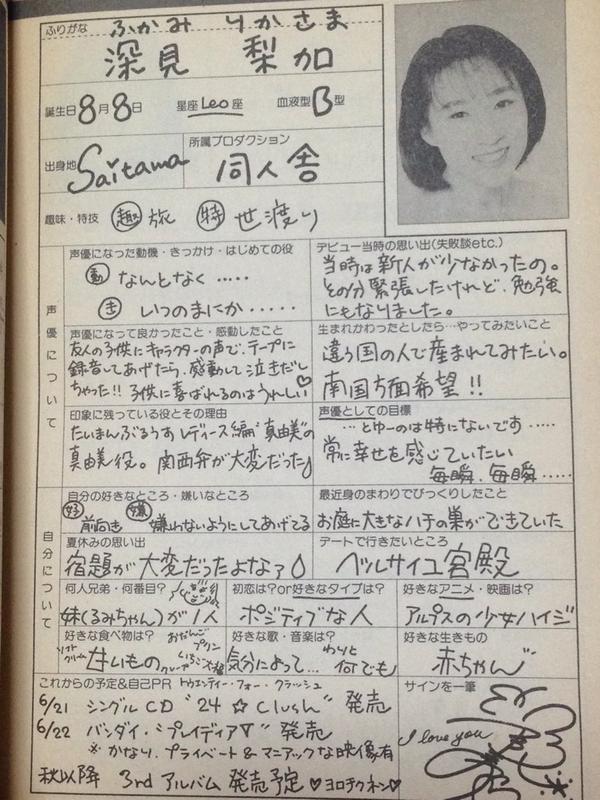 ふりがな ふかみ りかさま
深見 梨加
誕生日8月8日 星座Leo座 血液型B型
出身地 Saitama
所属プロダクション
同人舎
趣味・特技 趣 旅 特 世渡り
声優について
声優になった動機・きっかけ・はじめての役
動 なんとなく‥‥‥
いつのまにか‥‥‥
デビュー当時の思い出(失敗談etc.)
当時は新人が少なかったの。
その分緊張したけれど、勉強
にもなりました。
声優になって良かったこと・感動したこと
友人の子供にキャラクターの声で、テープに
録音してあげたら、感動して泣きだし
ちゃった!! 子供に喜ばれるのはうれしい♡
生まれかわったとしたら…やってみたいこと
違う国の人で産まれてみたい。
南国方面希望!!
印象に残っている役とその理由
たいまんぶるうす レディース編"真由美"の
真由美役。関西弁が大変だった
声優としての目標
…とゆーのは特にないです‥‥‥
常に幸せを感じていたい
毎瞬、毎瞬‥‥‥
自分について
自分の好きなところ・嫌いなところ
好 前向き 嫌 嫌わないようにしてあげてる
最近身のまわりでびっくりしたこと
お庭に大きなハチの巣ができていた
夏休みの思い出
宿題が大変だったよなァ
デートで行きたいところ
ベルサイユ宮殿
何人兄弟・何番目?
妹(るみちゃん)が1人
初恋は?or好きなタイプは?
ポジティブな人
好きなアニメ・映画は?
アルプスの少女ハイジ
好きな食べ物は?
甘いもの
おだんご
プリン
ソフトクリーム
クレープ
好きな歌・音楽は?
気分によって… わりと何でも
好きな生きもの
赤ちゃん
これからの予定&自己PR トゥエンティー・フォー・クラッシュ
6/21 シングルCD "24☆Clush" 発売
6/22 バンダイ・"プレイディア▽" 発売
※かなり、プライベート&マニアックな映像有
秋以降 3rdアルバム発売予定 ♡ヨロチクネン♡
サインを一筆
I love you